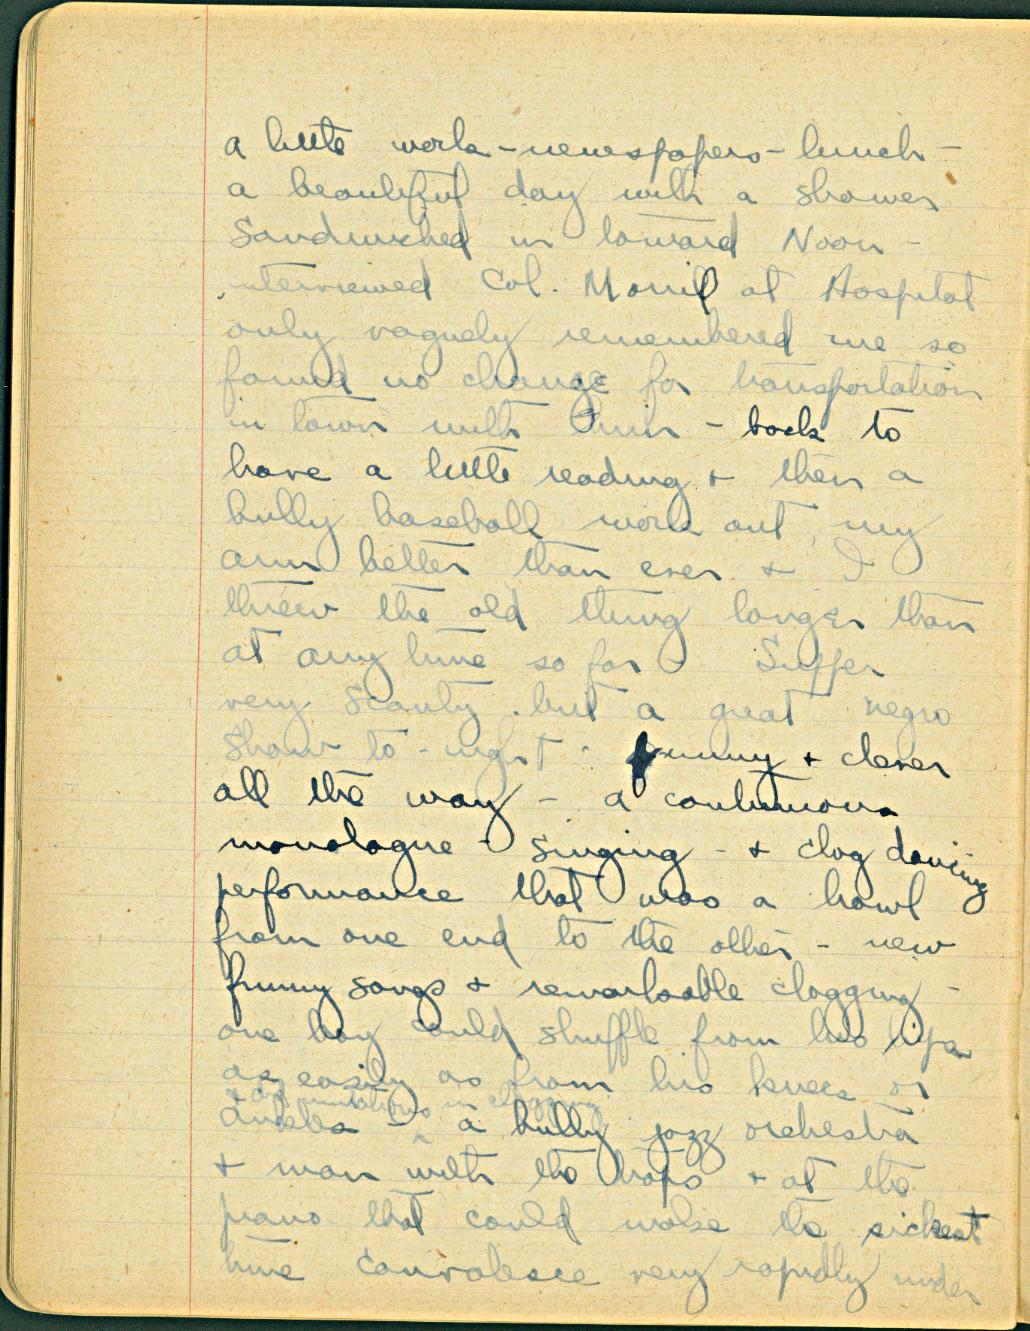 a little work - newspapers - lunch -
a beautiful day with a shower
Sandwiched in toward Noon -
interviewed Col. Morrill at Hospital
only vaguely remembered me so
found no change for transportation
in town with him - back to
have a little reading + then a
bully baseball work out, my
arm better than ever + I
threw the old thing longer than
at any time so far - Supper
very scanty but a great negro
show to-night. funny + clever
all the way - a continuous
monologue - singing - + clog dancing
performance that was a howl
from one end to the other - new
funny songs + remarkable clogging -
one boy could shuffle from his hips
as easily as from his knees or
+ did imitations in clogging
ankles - a bully jazz orchestra
+ man with the traps + at the
piano that could make the sickest
time convalesce very rapidly under